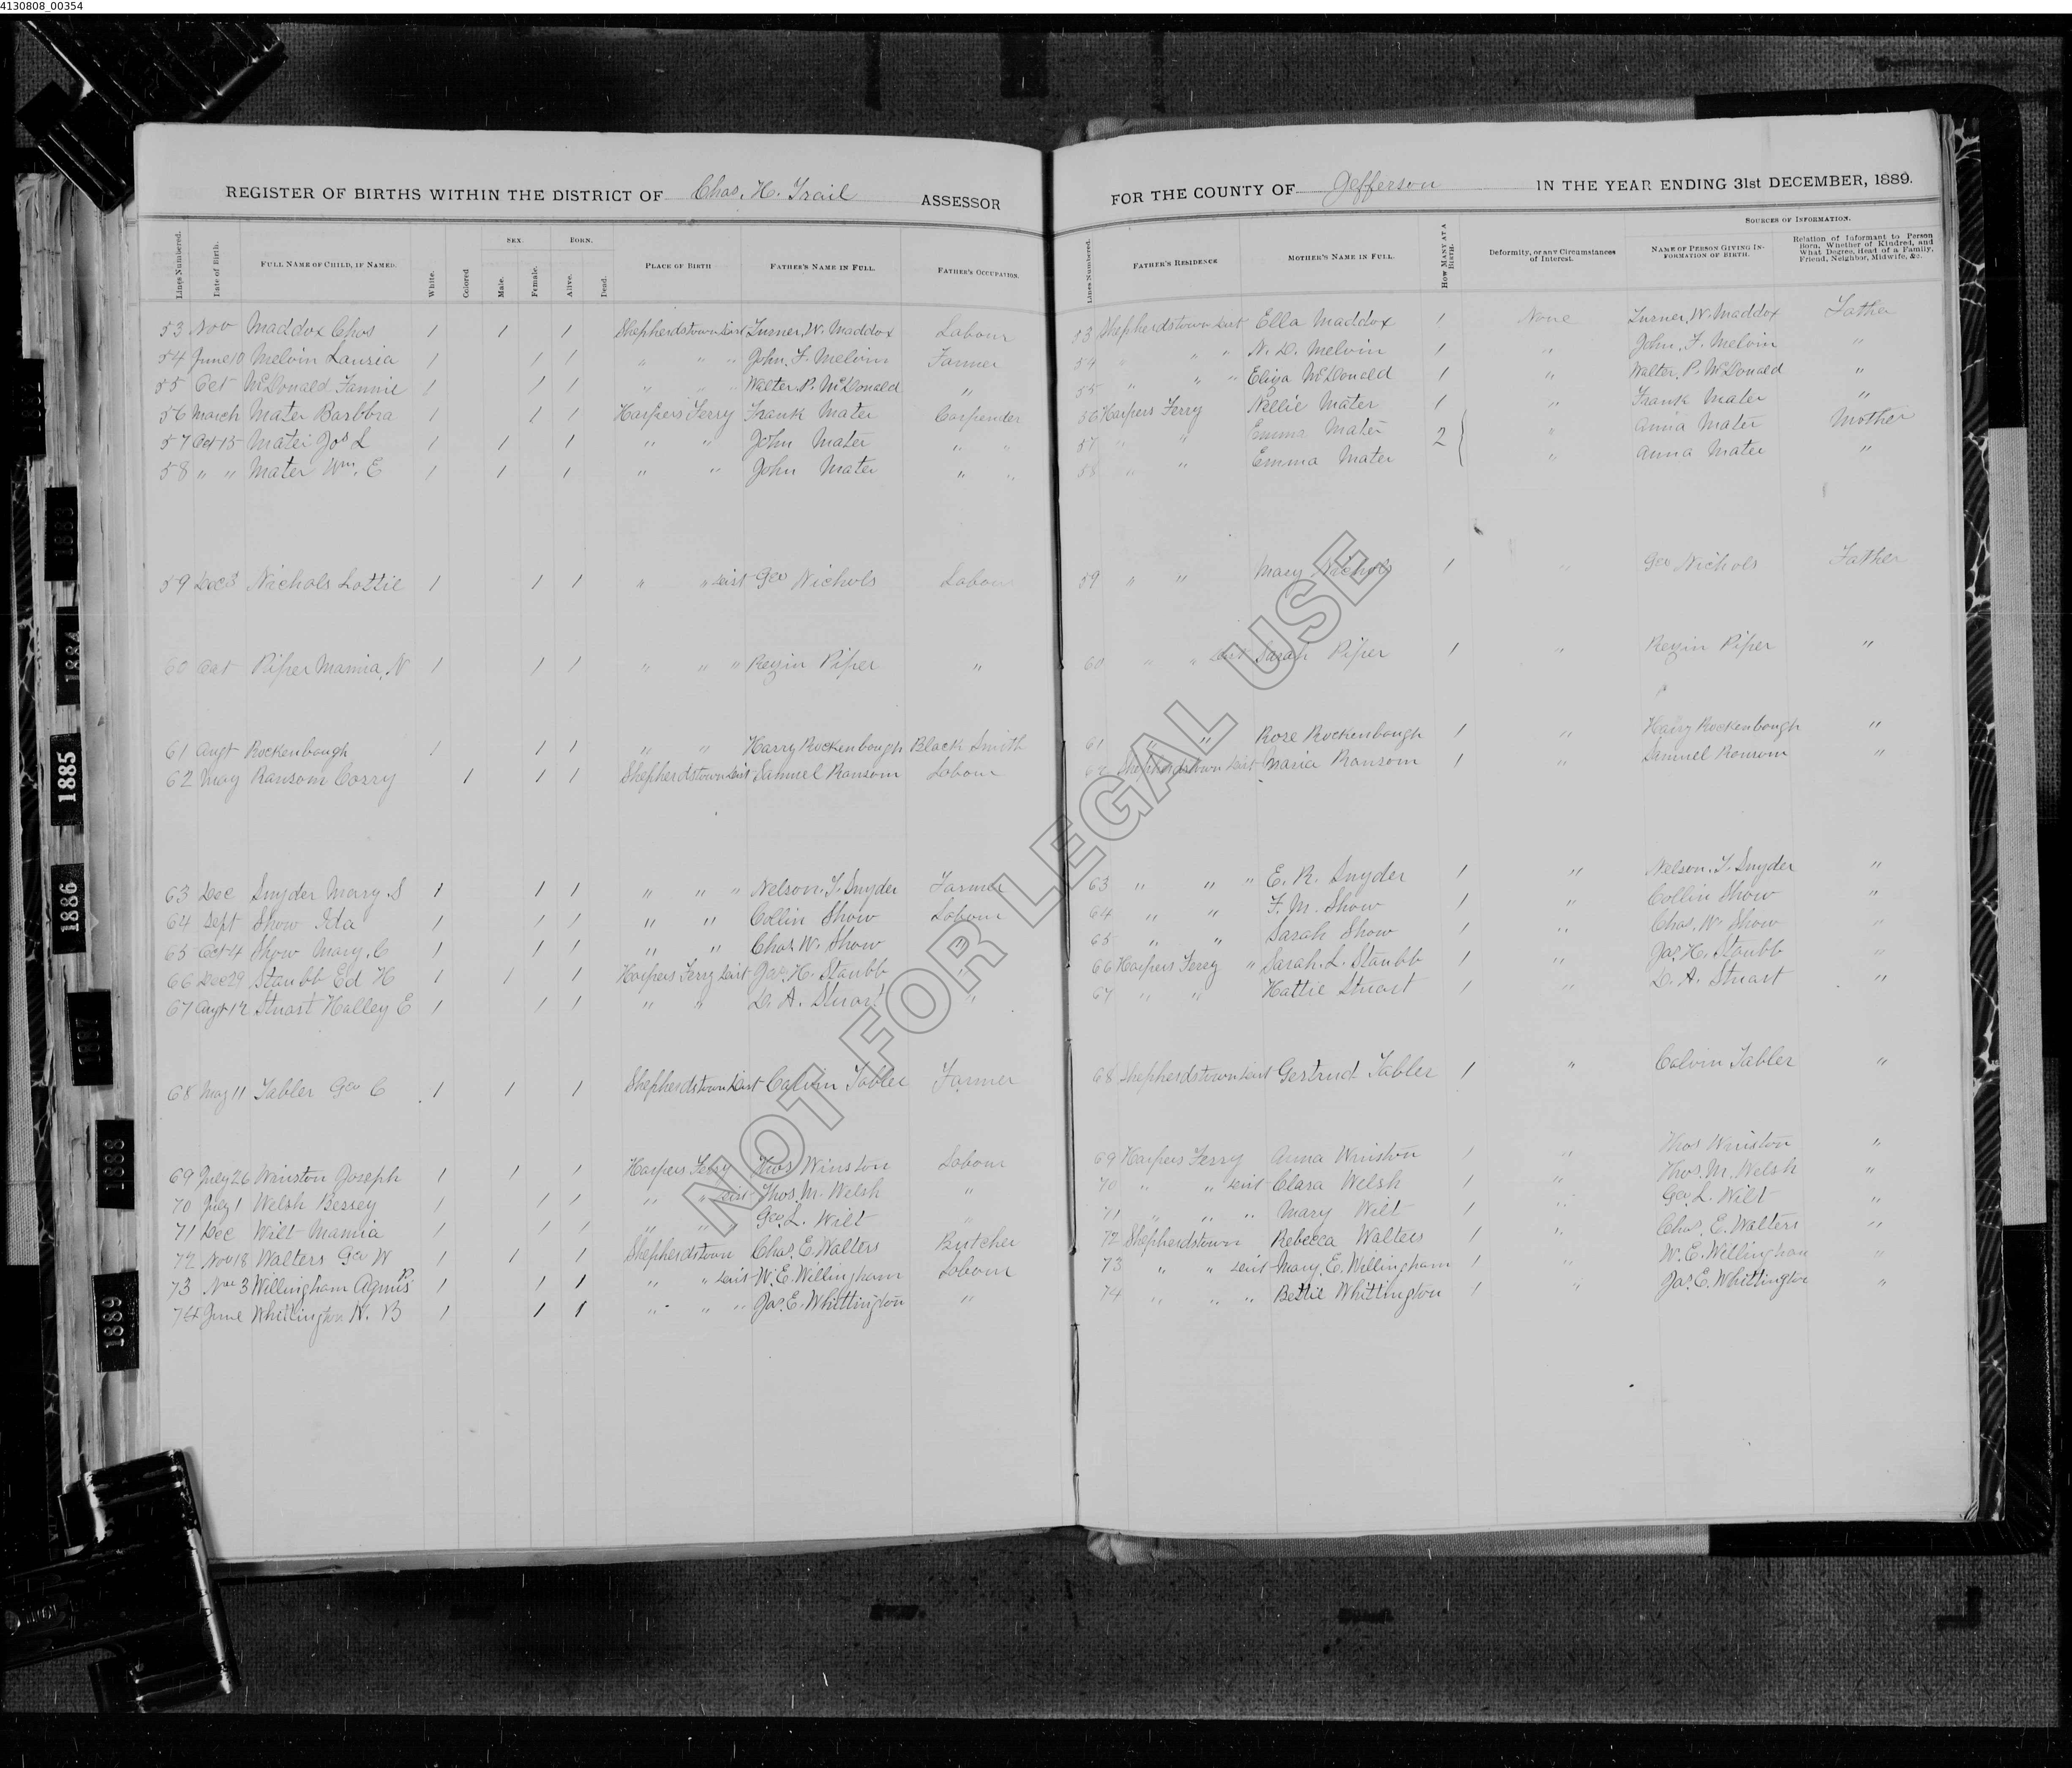 4130808_00354
REGISTER OF BIRTHS WITHIN THE DISTRICT OF Chas. H. Trail ASSESSOR
Lines Numbered. Date of Birth. FULL NAME OF CHILD, IF NAMED. White. Colored SEX. Male. Female. BORN. Alive. Dead. PLACE OF BIRTH FATHER'S NAME IN FULL. FATHER'S OCCUPATION.
53 Nov Maddox Chas 1 1 1 Shepherdstown Dist Turner W. Maddox Labour
54 June 10 Melvin Lansia 1 1 1 " " " John. F. Melvin Farmer
55 Oct McDonald Fannie 1 1 1 " " " Walter. P. McDonald "
56 March Mater Barbbra 1 1 1 Harpers Ferry Frank Mater Carpender
57 Oct 15 Mater Jos L 1 1 1 " " John Mater " "
58 " " Mater Wm. E 1 1 1 " " John Mater " "
59 Dec 3 Nichols Lottie 1 1 1 " " Dist Geo Nichols Labour
60 Oct Piper Mamia. N 1 1 1 " " " Rezin Piper "
61 Augt Rockenbough 1 1 1 " " Harry Rockenbough Black Smith
62 May Ransom Corry 1 1 1 Shepherdstown Dist Samuel Ransom Labour
63 Dec Snyder Mary. S 1 1 1 " " " Nelson. T. Snyder Farmer
64 Sept Show Ida 1 1 1 " " Collin Show Labour
65 Oct 4 Show Mary. C 1 1 1 " " Chas. W. Show "
66 Dec 29 Staubb Ed H 1 1 1 Harpers Ferry Dist Jas. H. Staubb "
67 Augt 12 Stuart Halley E 1 1 1 " " D. A. Stuart "
68 May 11 Tabler Geo C 1 1 1 Shepherdstown Dist Calvin Tabler Farmer
69 July 26 Winston Joseph 1 1 1 Harpers Ferry Thos Winston Labour
70 July 1 Welsh Bessey 1 1 1 " " Dist Thos. M. Welsh "
71 Dec Wilt Mamia 1 1 1 " " " Geo. L. Wilt "
72 Nov 18 Walters Geo W 1 1 1 Shepherdstown Chas. E. Walters Butcher
73 3 Willingham Agnus R 1 1 1 " " Dist W. E. Willingham Labour
74 June Whittington N. B 1 1 1 " " " Jas. E. Whittington "
FOR THE COUNTY OF Jefferson IN THE YEAR ENDING 31st DECEMBER, 1889.
Lines Numbered. FATHER'S RESIDENCE MOTHER'S NAME IN FULL. HOW MANY AT A BIRTH. Deformity, or any Circumstances of Interest. SOURCES OF INFORMATION. NAME OF PERSON GIVING INFORMATION OF BIRTH. Relation of Informant to Person Born, Whether of Kindred, and What Degree, Head of a Family, Friend, Neighbor, Midwife, &c.
53 Shepherdstown Dist Ella Maddox 1 None Turner. W. Maddox Father
54 " " " N. D. Melvin 1 " John. F. Melvin "
55 " " " Eliza McDonald 1 " Walter. P. McDonald "
56 Harpers Ferry Nellie Mater 1 " Frank Mater "
57 " " Emma Mater 2 " Anna Mater Mother
58 " " Emma Mater " Anna Mater "
59 " " Mary Nichols 1 " Geo Nichols Father
60 " " Dist Sarah Piper 1 " Rezin Piper "
61 " " Rose Rockenbough 1 " Harry Rockenbough "
62 Shepherdstown Dist Maria Ransom 1 " Samuel Ransom "
63 " " " E. R. Snyder 1 " Nelson. T. Snyder "
64 " " F. M. Show 1 " Collin Show "
65 " " Sarah Show 1 " Chas. W. Show "
66 Harpers Ferry " Sarah. L. Staubb 1 " Jas. H. Staubb "
67 " " Hattie Stuart 1 " D. A. Stuart "
68 Shepherdstown Dist Gertrud Tabler 1 " Calvin Tabler "
69 Harpers Ferry Anna Winston 1 " Thos Winston "
70 " " Dist Clara Welsh 1 " Thos. M. Welsh "
71 " " " Mary Wilt 1 " Geo. L. Wilt "
72 Shepherdstown Rebecca Walters 1 " Chas. E. Walters "
73 " " Dist Mary. E. Willingham 1 " W. E. Willingham "
74 " " " Bettie Whittington 1 " Jas. E. Whittington "
NOT FOR LEGAL USE
1883
1884
1885
1886
1887
1888
1889